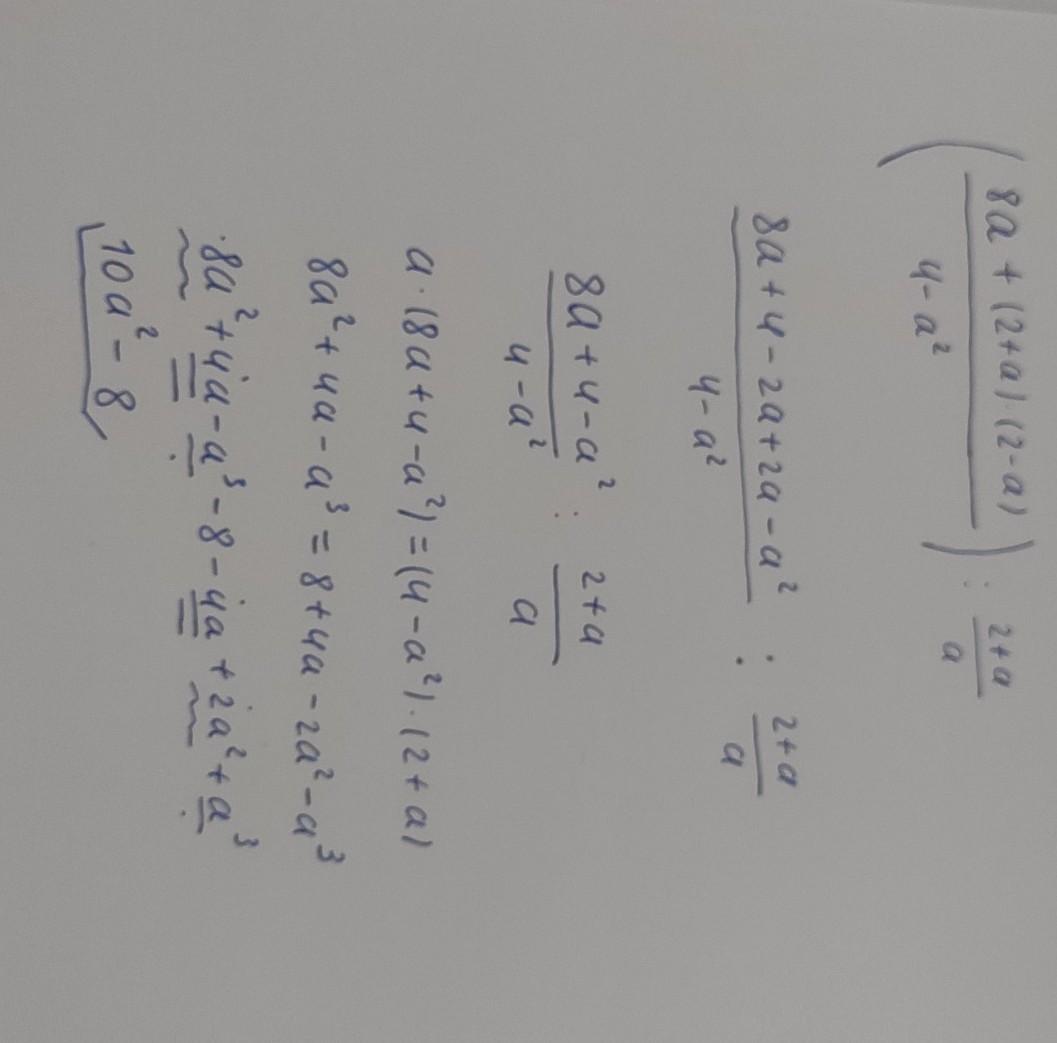 (8a + (2+a)·(2-a) / 4 - a²) : 2+a / a
8a + 4 - 2a + 2a - a² / 4 - a² : 2+a / a
8a + 4 - a² / 4 - a² : 2+a / a
a·(8a + 4 - a²) = (4 - a²)·(2 + a)
8a² + 4a - a³ = 8 + 4a - 2a² - a³
8a² + 4a - a³ - 8 - 4a + 2a² + a³
10a² - 8